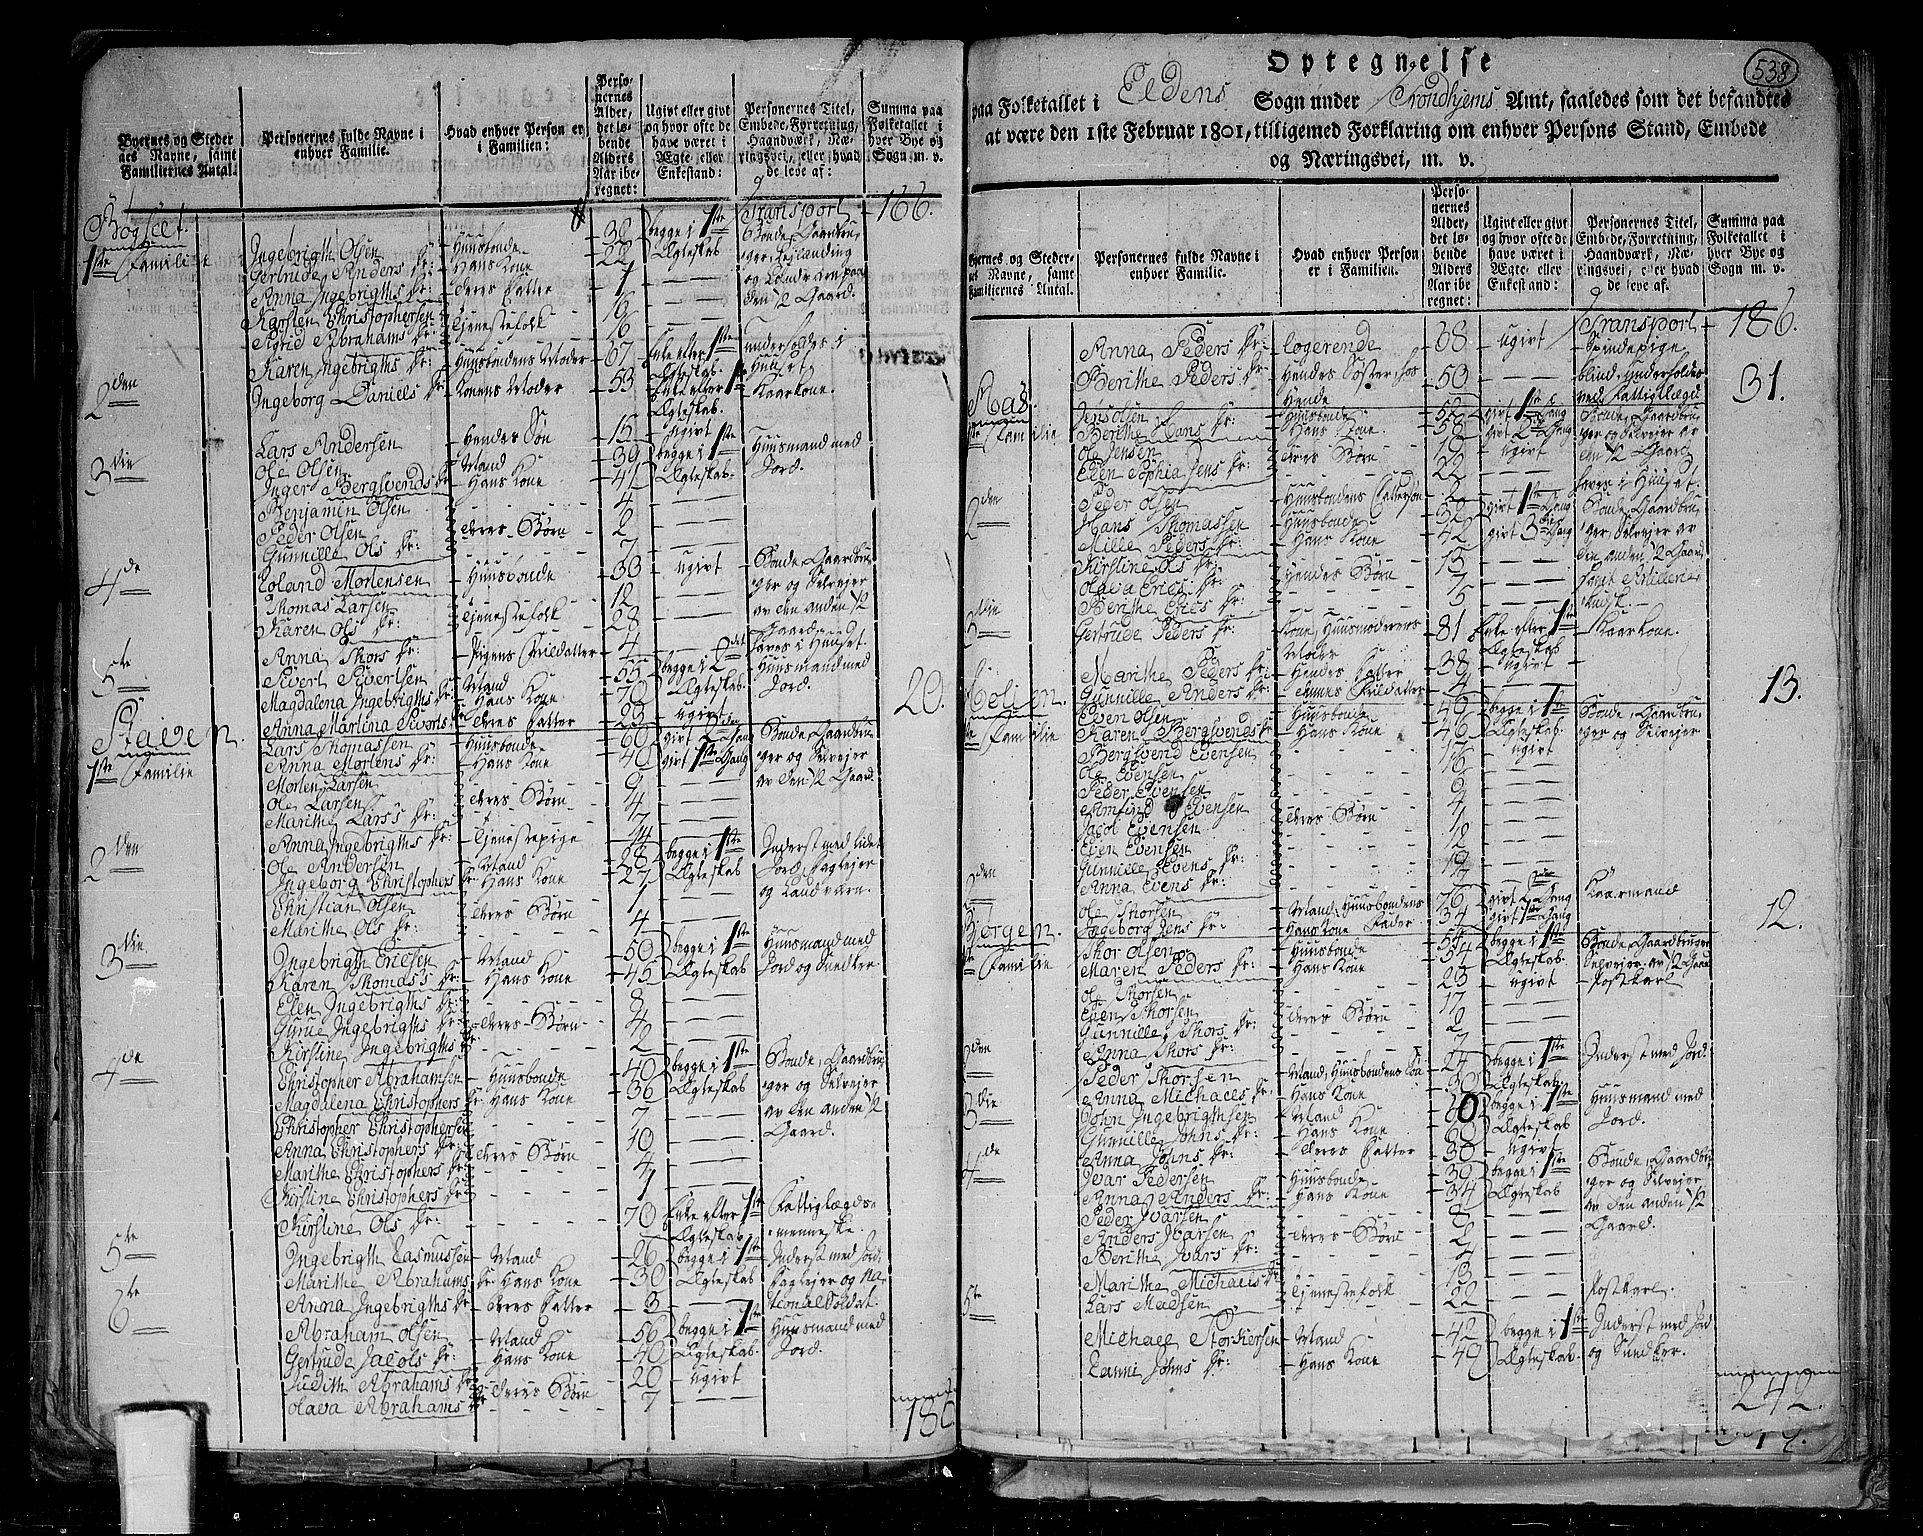 Byernes og Steder
nes Navne, samt
Familiernes Antal.
Personernes fulde Navne i
enhver Familie.
Hvad enhver Person er
i Familien:
Perso-
nernes
Alder,
det lø-
bende
Alders
Aar ibe-
regnet:
Ugivt eller givt
og hvor ofte de
have været i
Ægte- eller
Enkestand:
Personernes Titel,
Embede, Forretning,
Haandværk, Næ-
ringsvei, eller hvad
de leve af:
Summa paa
Folketallet i
hver Bye og
Sogn m. v.
Transport - 166.
Bøgseet.
1ste Familie
Ingebrigth Olsen - Huusbonde - 30 begge i 1ste Bonde, Gaardbru-
Gertrude Anders Dr: - Hans Kone - 22 Ægteskab
Anna Ingebrigths Dr: - deres Datter - 1
Karsten Christophersen - Tjenestefolk - 16
Sigrid Abrahams Dr: 16
Karen Ingebrigths Dr: - Huusbondens Moder - 67 Enke efter 1ste underholdes i
Ægteskab. Huuset
2den Ingeborg Daniels Dr: - Konens Moder - 53 Enke efter 1ste Kaarkone.
Ægteskab.
Lars Andersen - Hendes Søn - 15 ugivt
3die Ole Olsen - Mand - 39 begge i 1ste Huusmand med
Inger Bergsvends Dr: - Hans Kone - 41 Ægteskab. Jord.
Benjamin Olsen 4
Peder Olsen - deres Børn - 2
Gunnille Ols Dr: 7
4de Roland Mortensen - Huusbonde - 33 - ugivt Bonde, Gaardbru-
Thomas Larsen 12 ger og Selvejer
Karen Ols Dr: - Tjenestefolk - 28 av den anden 1/2
Gaard.
Anna Thors Dr: - Pigens Frildatter - 4 haves i Huuset.
5te Sivert Sivertsen - Mand - 55 begge i 2det Huusmand med
Magdalena Ingebrigths Dr: - Hans Kone - 70 Ægteskab. Jord. 20.
Anna Martina Siverts - deres Datter - 23 ugivt
Staven
1ste Familie
Lars Thomassen - Huusbonde - 60 givt 2den Gang Bonde, Gaardbru-
Anna Mortens Dr: - Hans Kone - 40 givt 1ste Gang ger og Selvejer
Morten Larsen 9 av den 1/2 Gaard.
Ole Larsen - deres Børn - 4
Marithe Lars's Dr: 7
Anna Ingebrigths Dr: - Tjenestepige - 14
2den Ole Andersen - Mand - 28 begge i 1ste Inderst med lidet
Ingeborg Christophers Dr: - Hans Kone - 27 Ægteskab Jord, Daglejer
Christian Olsen 1 og Landværn.
Marithe Ols Dr: - deres Børn - 4
3die Ingebrigth Ericsen - Mand - 50 begge i 1ste Huusmand med
Karen Thomas's Dr: - Hans Kone - 45 Ægteskab Jord og Snedker.
Elen Ingebrigths Dr: 8
Gurue Ingebrigths Dr: - deres Børn - 4
Kirstine Ingebrigths Dr: 2
4de Christopher Abrahamsen - Huusbonde - 40 begge i 1ste Bonde, Gaardbru-
Magdalena Christophers Dr: - Hans Kone - 36 Ægteskab ger og Selvejer
Christopher Christophersen 7 av den anden 1/2
Anna Christophers Dr: - deres Børn - 10 Gaard.
Marithe Christophers Dr: 4
Kirstine Christophers Dr: 1
Kirstine Ols Dr: 70 Enke efter 1ste Fattiglægds-
Ægteskab menneske.
5te Ingebrigth Rasmussen - Mand - 26 begge i 1ste Inderst med Jord,
Marithe Abrahams Dr: Hans Kone - 30 Ægteskab Daglejer og Na-
Anna Ingebrigths Dr: - deres Datter - 3 tional Soldat.
6te Abraham Olsen - Mand - 56 begge i 1ste Huusmand med
Gertrude Jacobs Dr: - Hans Kone - 40 Ægteskab. Jord.
Judith Abrahams Dr: - deres Børn - 20 - ugivt
Olava Abrahams 7
186
Optegnelse
538
paa Folketallet i Eldens Sogn under Trondhjems Amt, saaledes som det befandtes
at være den 1ste Februar 1801, tilligemed Forklaring om enhver Persons Stand, Embede
og Næringsvei, m. v.
Byernes og Steder-
nes Navne, samt
Familiernes Antal.
Personernes fulde Navne i
enhver Familie.
Hvad enhver Person
er i Familien.
Perso-
nernes
Alder,
det lø-
bende
Alders
Aar ibe-
regnet:
Ugivt eller givt
og hvor ofte de
have været i
Ægte- eller
Enkestand:
Personernes Titel,
Embede, Forretning,
Haandværk, Næ-
ringsvei, eller hvad
de leve af.
Summa paa
Folketallet i
hver Bye og
Sogn m. v.
Transport - 186.
Anna Peders Dr: - logerende - 68 - ugivt Spindepige
Berithe Peders Dr: - Hendes Søster, hos 50 blind, underholdes
Hende ved Fattiglægd 31.
Jens Olsen - Huusbonde 52 givt 1ste Gang Bonde, Gaardbru-
Familie Berithe Hans Dr: - Hans Kone. 58 givt 2den Gang ger og Selvejer av
Ole Jensen - deres Børn 19 ugivt den 1/2 Gaard
Elen Sophia Jens Dr: 22
Peder Olsen - Huusbondens Dattersøn haves i Huuset.
2den Hans Thomassen - Huusbonde - 32 givt 1ste Gang Bonde, Gaardbru-
Mille Peders Dr: - Hans Kone - 42 givt 3die Gang ger, Selvejer av
Kirstine Ols Dr: 15 den anden 1/2 Gaard
Olava Erics Dr: - Hendes Børn 7 samt Artillerie-
Berithe Erics Dr: 5 kudsk.
3die Gertrude Peders Dr: - Kone, Huusmoderens 81 Enke efter 1ste - Kaarkone.
Moder Ægteskab
Marithe Peders Dr: - Hendes Datter 38 - ugivt
Gunnille Anders Dr: - dennes Frildatter 4 13.
Even Olsen - Huusbonde - 49 begge i 1ste Bonde, Gaardbru-
Familie Karen Bergsvends Dr - Hans Kone - 46 Ægteskab. ger og Selvejer
Bergsvend Evensen 17 - ugivt
Ole Evensen 16
Peder Evensen 9
Amund Evensen 4
Jacob Evensen - deres Børn 1
Even Evensen 12
Gunnille Evens Dr: 19
Anna Evens Dr: 7
2den Ole Thorsen - Mand, Huusbondens 76 givt 2den Gang Kaarmand
Ingeborg Jens Dr: - Hans Kone Fader 34 givt 1ste Gang 12.
Bergen.
Thor Olsen - Huusbonde 54 begge i 1ste Bonde, Gaardbruger
Familie Maren Peders Dr: - Hans Kone - 54 Ægteskab. Selvejer av 1/2 Gaard
Ole Thorsen 23 - ugivt - Postkarl
Even Thorsen - deres Børn 17
Gunnille Thors Dr: 2
Anna Thors Dr: 7
2den Peder Thorsen - Mand, Huusbondens 24 begge i 1ste Inderst med Jord.
Anna Michaels Dr: - Hans Kone - 30 Ægteskab
3die John Ingebrigthsen - Mand - 60 begge i 1ste Huusmand med
Gunnille Johns Dr: - Hans Kone - 60 Ægteskab Jord.
Anna Johns Dr: - deres Datter - 30 - ugivt
4de Ivar Pedersen - Huusbonde - 39 begge i 1ste Bonde, Gaardbru-
Anna Anders Dr: - Hans Kone - 34 Ægteskab ger og Selvejer
Peder Ivarsen 8 av den anden 1/2
Anders Ivarsen - deres Børn 2 Gaard.
Berithe Ivars Dr: 4
Marithe Michaels Dr 13
Lars Madsen - Tjenestefolk 22 Postkarl.
5te Michael Storkersen - Mand - 42 begge i 1ste Inderst med Jord
Ranni Johns Dr: - Hans Kone - 49 Ægteskab. og Snedker.
242.